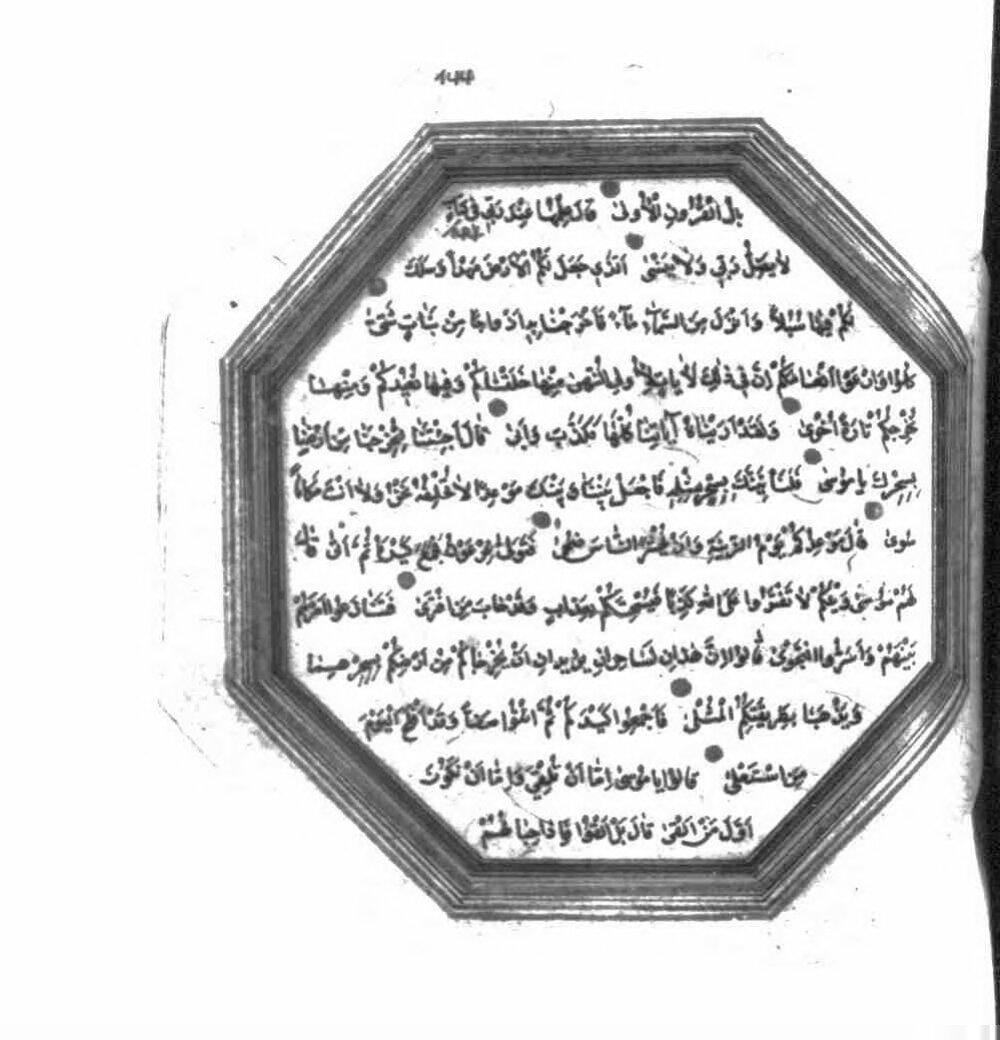 ١٤٤
بال القرون الأولى قال علمها عند ربي في كتاب
لا يضل ربي ولا ينسى الذي جعل لكم الأرض مهدا وسلك
لكم فيها سبلا وأنزل من السماء ماء فأخرجنا به أزواجا من نبات شتى
كلوا وارعوا أنعامكم إن في ذلك لآيات لأولي النهى منها خلقناكم وفيها نعيدكم ومنها
نخرجكم تارة أخرى ولقد أريناه آياتنا كلها فكذب وأبى قال أجئتنا لتخرجنا من أرضنا
بسحرك يا موسى فلنأتينك بسحر مثله فاجعل بيننا وبينك موعدا لا نخلفه نحن ولا أنت مكانا
سوى قال موعدكم يوم الزينة وأن يحشر الناس ضحى فتولى فرعون فجمع كيده ثم أتى قال
لهم موسى ويلكم لا تفتروا على الله كذبا فيسحتكم بعذاب وقد خاب من افترى فتنازعوا أمرهم
بينهم وأسروا النجوى قالوا إن هذان لساحران يريدان أن يخرجاكم من أرضكم بسحرهما
ويذهبا بطريقتكم المثلى فأجمعوا كيدكم ثم ائتوا صفا وقد أفلح اليوم
من استعلى قالوا يا موسى إما أن تلقي وإما أن نكون
أول من ألقى قال بل ألقوا فإذا حبالهم